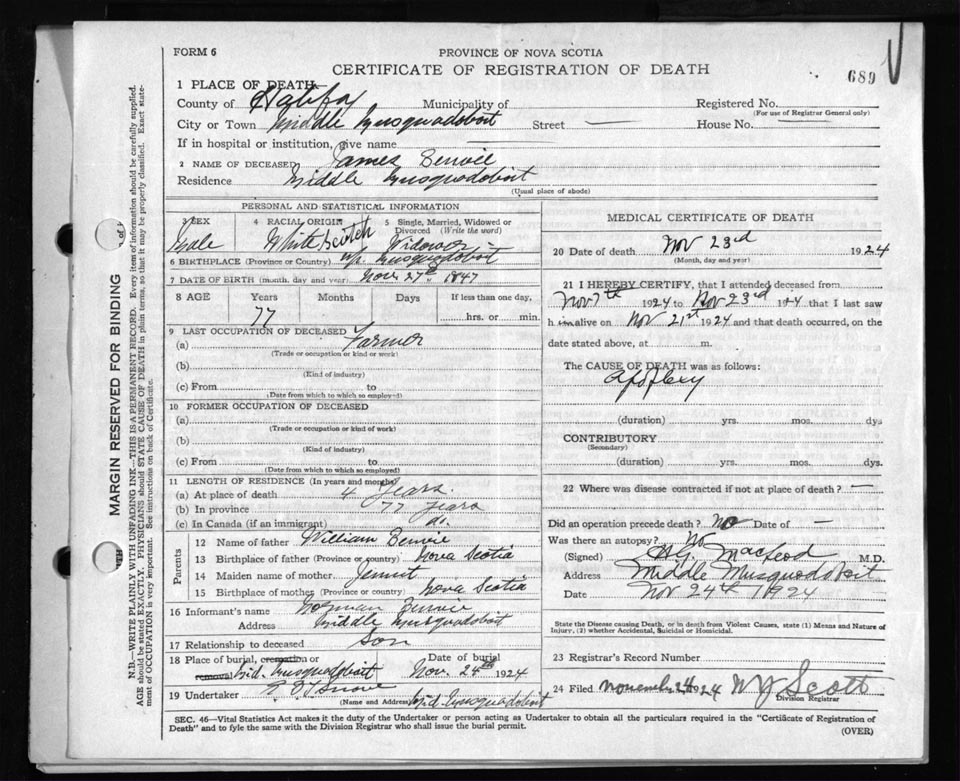 FORM 6
PROVINCE OF NOVA SCOTIA
CERTIFICATE OF REGISTRATION OF DEATH
689
1 PLACE OF DEATH
County of Halifax Municipality of Registered No.
(For use of Registrar General only)
City or Town Middle Musquodoboit Street — House No. —
If in hospital or institution, give name —
2 NAME OF DECEASED James
Residence Middle Musquodoboit
(Usual place of abode)
PERSONAL AND STATISTICAL INFORMATION
3 SEX 4 RACIAL ORIGIN 5 Single, Married, Widowed or Divorced (Write the word)
Male White Scotch Widower
6 BIRTHPLACE (Province or Country) Musquodoboit
7 DATE OF BIRTH (month, day and year) Nov. 27th 1847
8 AGE Years Months Days If less than one day,
77 hrs. or min.
9 LAST OCCUPATION OF DECEASED
(a) Farmer
(Trade or occupation or kind or work)
(b)
(Kind of industry)
(c) From to
(Date from which to which so employed)
10 FORMER OCCUPATION OF DECEASED
(a)
(Trade or occupation or kind of work)
(b)
(Kind of industry)
(c) From to
(Date from which to which so employed)
11 LENGTH OF RESIDENCE (In years and months)
(a) At place of death 4 years.
(b) In province 77 years
(c) In Canada (if an immigrant) do.
Parents
12 Name of father William
13 Birthplace of father (Province or country) Nova Scotia
14 Maiden name of mother
15 Birthplace of mother (Province or country) Nova Scotia
16 Informant's name Norman
Address Middle Musquodoboit
17 Relationship to deceased Son
18 Place of burial, cremation or removal Mid. Musquodoboit Date of burial Nov. 24th 1924
19 Undertaker
(Name and Address) Mid. Musquodoboit
MEDICAL CERTIFICATE OF DEATH
20 Date of death Nov 23rd 1924
(Month, day and year)
21 I HEREBY CERTIFY, that I attended deceased from
Nov 7th 1924 to Nov 23rd 1924 that I last saw
h im alive on Nov 21st 1924 and that death occurred, on the
date stated above, at m.
The CAUSE OF DEATH was as follows:
Apoplexy
(duration) yrs. mos. dys
CONTRIBUTORY
(Secondary)
(duration) yrs. mos. dys.
22 Where was disease contracted if not at place of death? —
Did an operation precede death? No Date of —
Was there an autopsy? No
(Signed) MacLeod M.D.
Address Middle Musquodoboit
Date Nov 24th 1924
State the Disease causing Death, or in death from Violent Causes, state (1) Means and Nature of
Injury, (2) whether Accidental, Suicidal or Homicidal.
23 Registrar's Record Number
24 Filed November 24 1924 W J Scott
Division Registrar
SEC. 46—Vital Statistics Act makes it the duty of the Undertaker or person acting as Undertaker to obtain all the particulars required in the "Certificate of Registration of
Death" and to fyle the same with the Division Registrar who shall issue the burial permit.
(OVER)
MARGIN RESERVED FOR BINDING
N.B.—WRITE PLAINLY WITH UNFADING INK—THIS IS A PERMANENT RECORD. Every item of information should be carefully supplied.
AGE should be stated EXACTLY. PHYSICIANS should STATE CAUSE OF DEATH in plain terms, so that it may be properly classified. Exact state-
ment of OCCUPATION is very important. See instructions on back of Certificate.